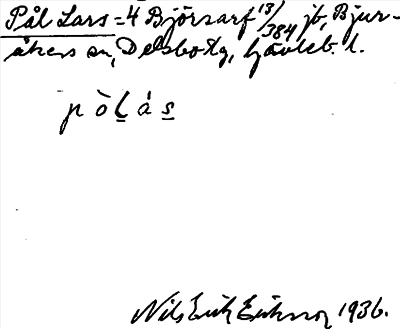 Pål Lars = 4 Björsarf 13/384 jb, Bjur-
åkers sn, Delsbo tg, Gävleb. l.
p ò l á s
Nils Erik Eriksson 1936.